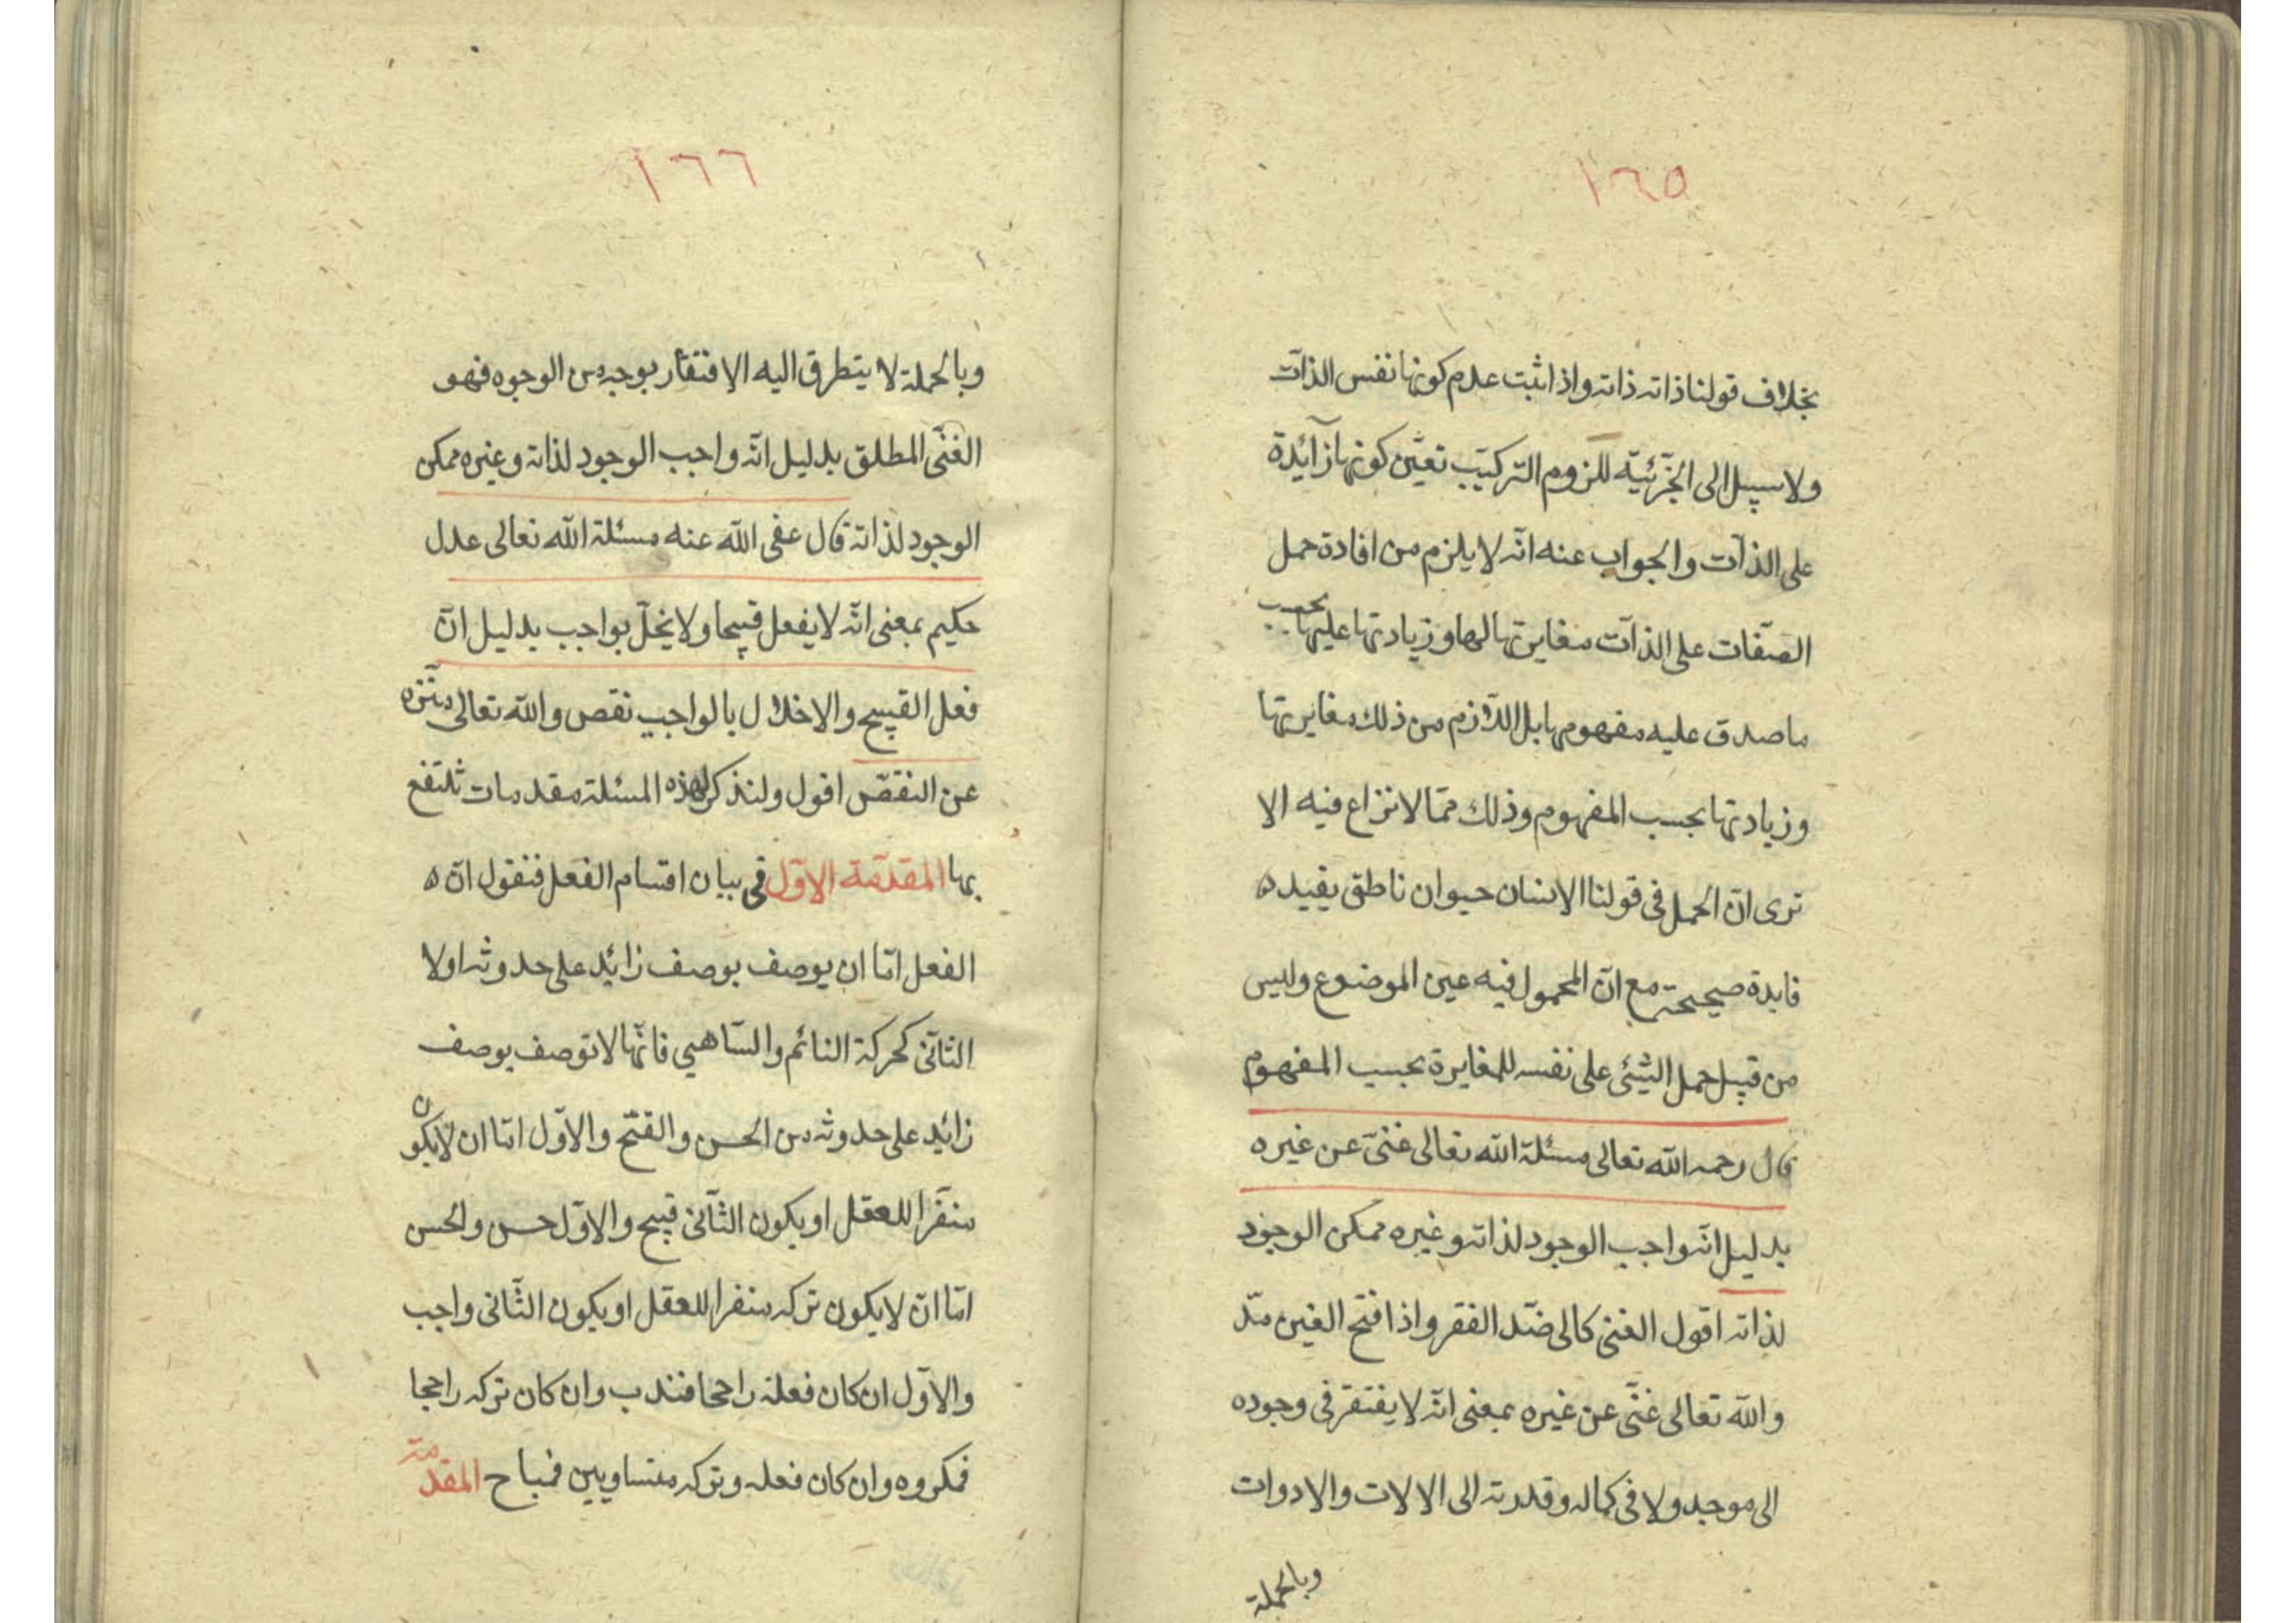 ١٦٥
بخلاف قولنا ذاته ذاته واذا ثبت عدم كونها نفس الذات
ولا سبيل الى الجزئية للزوم التركيب تعين كونها زائدة
على الذات والجواب عنه انه لا يلزم من افادة حمل
الصفات على الذات مغايرتها لها وزيادتها عليها بحسب
ما صدق عليه مفهومها بل اللازم من ذلك مغايرتها
وزيادتها بحسب المفهوم وذلك مما لا نزاع فيه الا
ترى ان الحمل فى قولنا الانسان حيوان ناطق يفيد ه
فايدة صحيحة مع ان المحمول فيه عين الموضوع وليس
من قبيل حمل الشئ على نفسه للمغايرة بحسب المفهوم
قال رحمه الله تعالى مسئلة الله تعالى غنى عن غيره
بدليل انه واجب الوجود لذاته وغيره ممكن الوجود
لذاته اقول الغنى كالى ضد الفقر واذا فتح الغين مد
والله تعالى غنى عن غيره بمعنى انه لا يفتقر فى وجوده
الى موجد ولا فى كماله وقدرته الى الالات والادوات
وبالجملة
١٦٦
وبالجملة لا يتطرق اليه الافتقار بوجه من الوجوه فهو
الغنى المطلق بدليل انه واجب الوجود لذاته وغيره ممكن
الوجود لذاته قال عفى الله عنه مسئلة الله تعالى عدل
حكيم بمعنى انه لا يفعل قبيحا ولا يخل بواجب بدليل ان
فعل القبيح والاخلال بالواجب نقص والله تعالى منزه
عن النقص اقول ولنذكر لهذه المسئلة مقدمات ثلتفع
بها المقدمة الاول فى بيان اقسام الفعل فنقول ان ه
الفعل اما ان يوصف بوصف زائد على حدوثه اولا
الثانى كحركة النائم والساهي فانها لا توصف بوصف
زائد على حدوثه من الحسن والقبح والاول اما ان لا يكون
منفرا للعقل او يكون الثانى قبيح والاول حسن والحسن
اما ان لا يكون تركه منفرا للعقل او يكون الثانى واجب
والاول ان كان فعله راجحا فندب وان كان تركه راجحا
فمكروه وان كان فعله وتركه متساويين فمباح المقدمة